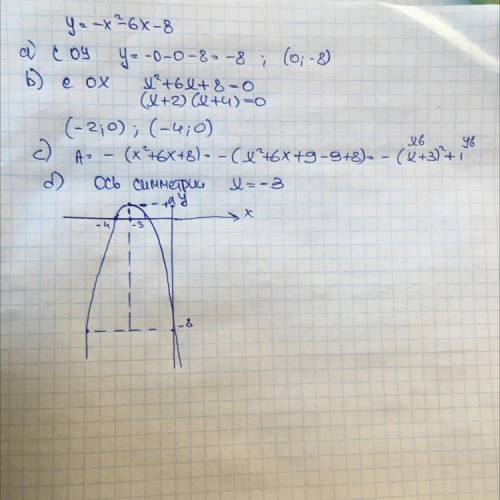 y = -x²-6x-8
a) с ОУ y = -0-0-8 = -8 ; (0;-8)
b) с ОХ x²+6x+8=0
(x+2)(x+4)=0
(-2;0) ; (-4;0)
xв yв
c) A = - (x²+6x+8) = - (x²+6x+9-9+8) = - (x+3)²+1
d) Ось симметрии x = -3
y
x
-4 -3
-8